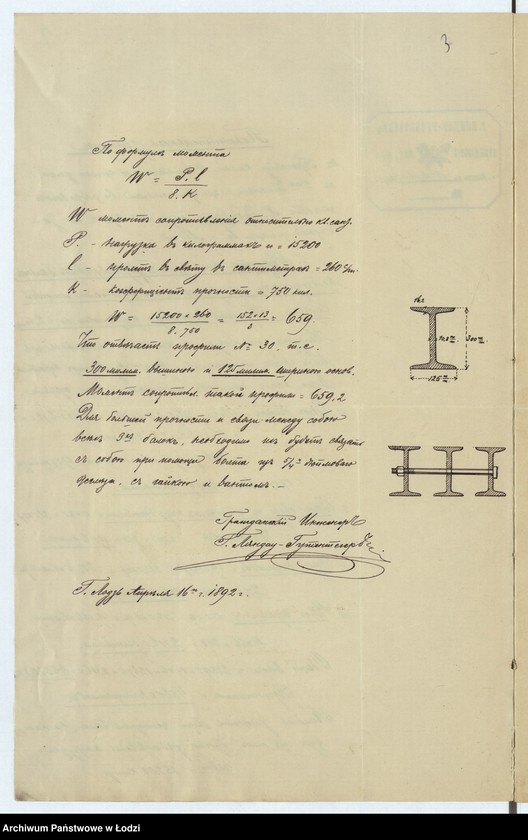 3
По формулѣ момента
W = P. l / 8. K
W моментъ сопротивленія относительно кв. санд.
P. - нагрузка въ килограммахъ и = 15200
l - пролетъ въ свѣту въ сантиметрахъ = 260 с/m.
K - коэфиціентъ прочности = 750 кил.
W = 15200 × 260 / 8. 750 = 152 × 13 / 3 = 659.
Что отвѣчаетъ профили № 30, т. е.
300 мілим. вышиною и 125 милим. шириною основ.
Моментъ сопротивл. такой профили = 659,2
Для большей прочности и связи между собою
всѣхъ балокъ, необходимо ихъ будетъ связать
съ собою при помощи болта изъ 5/4" дюймоваго
желѣза, съ гайкою и
Гражданскій Инженеръ
Г. Ландау-Гутентегеръ
Г. Лодзь Апрѣля 16 г. 1892 г.
16,2
10,8 m/m
300 m/m
125 m/m
Archiwum Państwowe w Łodzi